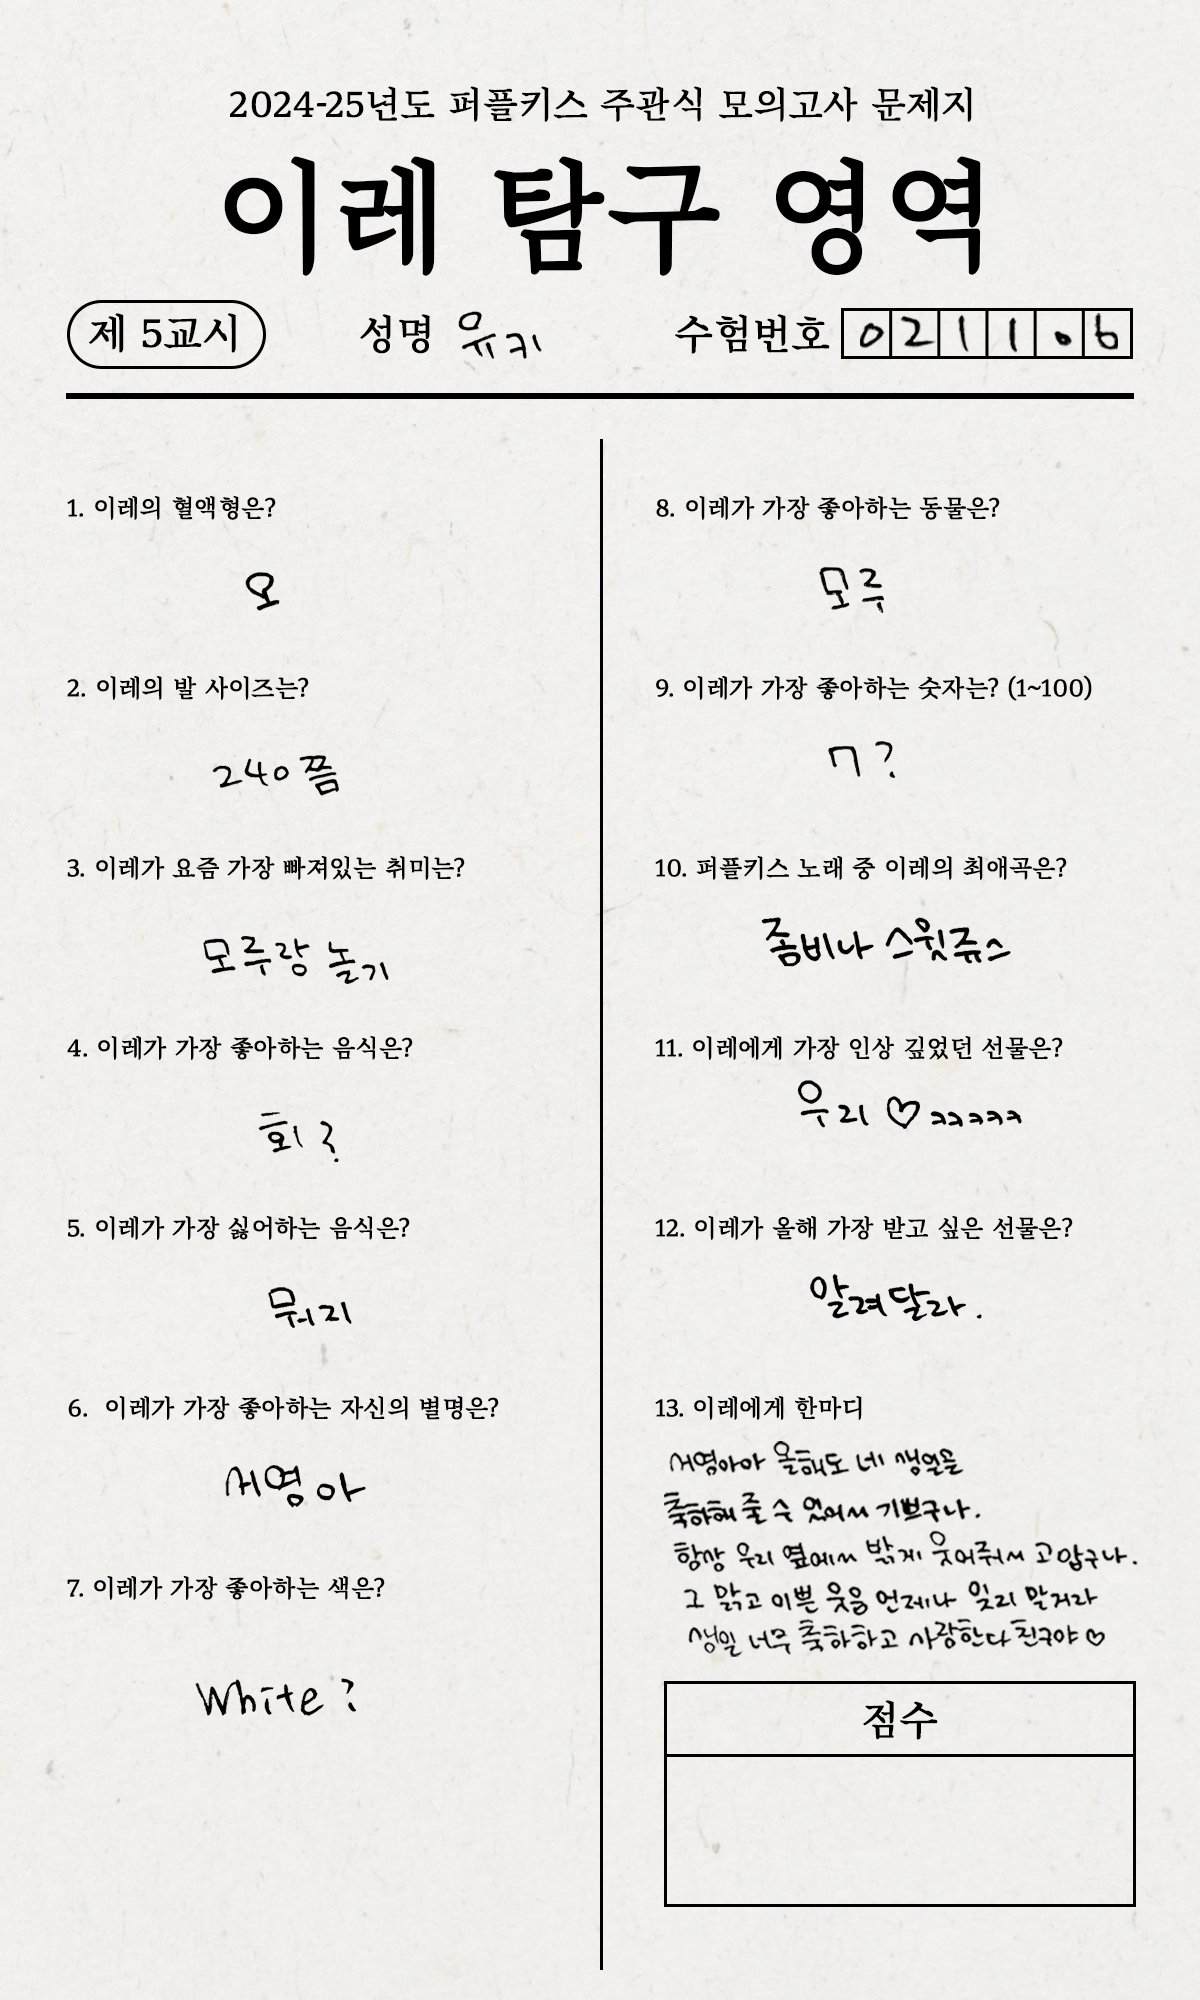 2024-25년도 퍼플키스 주관식 모의고사 문제지
이레 탐구 영역
제 5교시
성명 유키
수험번호 0211.6
1. 이레의 혈액형은?
오
2. 이레의 발 사이즈는?
240쯤
3. 이레가 요즘 가장 빠져있는 취미는?
모루랑 놀기
4. 이레가 가장 좋아하는 음식은?
회?
5. 이레가 가장 싫어하는 음식은?
뭐지
6. 이레가 가장 좋아하는 자신의 별명은?
서영아
7. 이레가 가장 좋아하는 색은?
White?
8. 이레가 가장 좋아하는 동물은?
모루
9. 이레가 가장 좋아하는 숫자는? (1~100)
7?
10. 퍼플키스 노래 중 이레의 최애곡은?
좀비나 스윗쥬스
11. 이레에게 가장 인상 깊었던 선물은?
우리♡ㅋㅋㅋㅋㅋ
12. 이레가 올해 가장 받고 싶은 선물은?
알려달라.
13. 이레에게 한마디
서영아아 올해도 네 생일을
축하해 줄 수 있어서 기쁘구나.
항상 우리 옆에서 밝게 웃어줘서 고맙구나.
그 맑고 이쁜 웃음 언제나 잊지 말거라
생일 너무 축하하고 사랑한다 친구야♡
점수